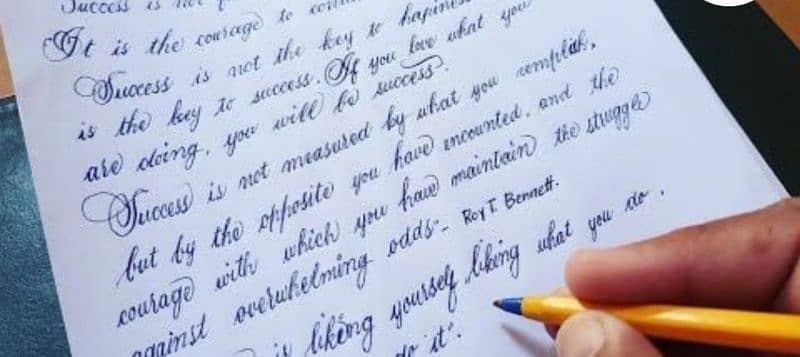 Success is not
It is the courage to
Success is not the key to happiness
is the key to success. If you love what you
are doing, you will be success".
Success is not measured by what you complish,
but by the opposite you have encounted, and the
courage with which you have maintain the struggle
against overwhelming odds"- Roy T. Bennett.
is liking yourself liking what you do.
do it".